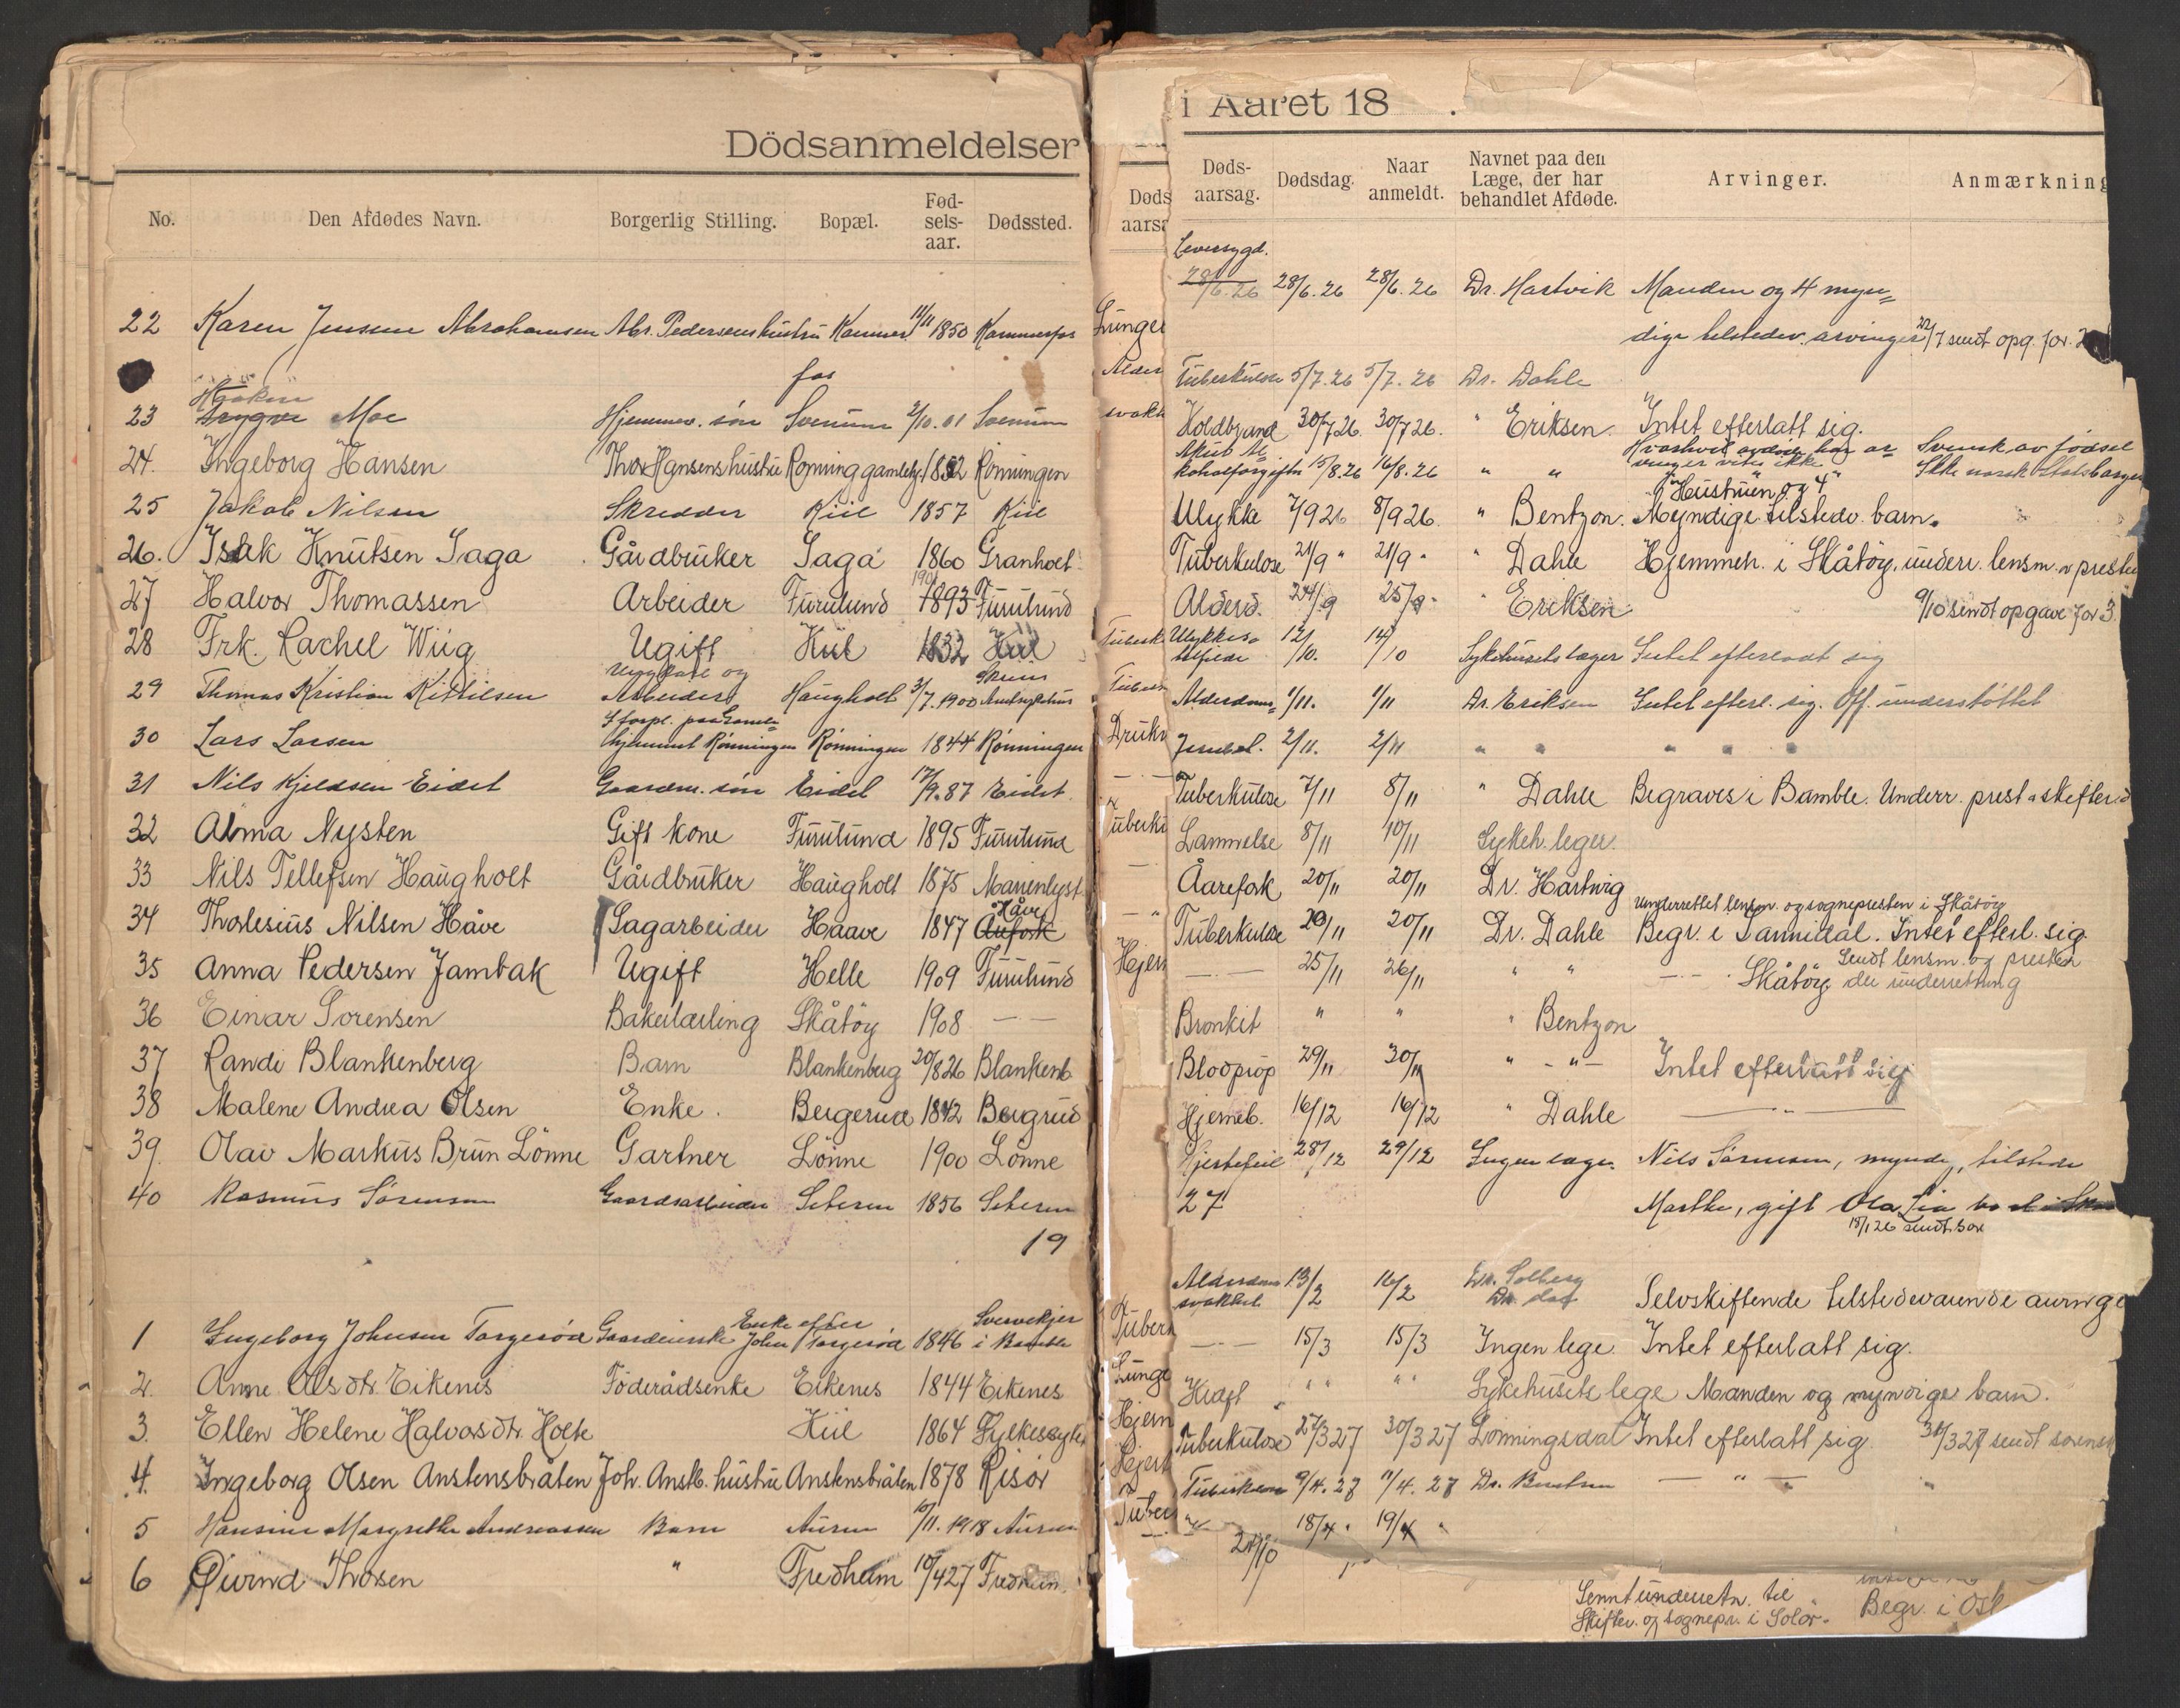 Dödsanmeldelser
No. Den Afdødes Navn. Borgerlig Stilling. Bopæl. Fød-sels-aar. Dødssted.
22 Karen Jensen Abrahamsen Abr. Pedersens hustru Kammer 11/11 1850 Kammerfos
fos
Håken
23 Trygve Moe Hjemmev. søn Soenum 2/10.01 Soenum
24. Ingeborg Hansen Thor Hansens hustru Rønning gamleh. 1852 Rønningen
25 Jakob Nilsen Skredder Kiil 1857 Kiil
26. Isak Knutsen Saga Gårdbruker Saga 1860 Granholt
1901
27 Halvor Thomassen Arbeider Furulund 1893 Furulund
28 Frk. Rachel Wiig Ugift Kiil 1832 Kiil
Ungkarl og Skiens
29 Thomas Kristian Kittilsen Arbeider Haugholt 3/7.1900 Amtsykehus
Forpl. paa Gamle
30 Lars Larsen hjemmet Rønningen Rønningen 1844 Rønningen
31 Nils Kjeldsen Eidet Gaardm. søn Eidet 17/9.87 Eidet
32 Alma Nysten Gift kone Furulund 1895 Furulund
33 Nils Tellefsen Haugholt Gårdbruker Haugholt 1875 Marienlyst
Håve
34 Thorlesius Nilsen Håve Sagarbeider Haave 1847 Aafork
35 Anna Pedersen Jambak Ugift Helle 1909 Furulund
36 Einar Sorensen Bakerlærling Skåtöy 1908 — —
37 Randi Blankenberg Barn Blankenberg 20/8 26 Blankenb
38 Malene Andrea Olsen Enke. Bergerud 1842 Bergrud
39. Olav Markus Brun Lönne Gartner Lönne 1900 Lönne
40 Rasmus Sörensen Gaardsarbeider Seteren 1856 Seteren
19
Enke efter
1 Ingeborg Johnsen Torgersöd Gaardeierske John Torgersöd 1846 i Bamble
2. Anne Olsdtr. Eikenes Föderådsenke Eikenes 1844 Eikenes
3. Ellen Helene Halvorsdtr. Holte Kiil 1864 Fylkessykeh
4. Ingeborg Olsen Anstensbråten Joh. Anstb. hustru Anstensbråten 1878 Risör
5 Hansine Margrethe Andreassen Barn 10/11.1918
6 Øivind Thorsen " Fredheim 10/4 27 Fredheim.
Døds
aarsa
Lunge
Alder
svakh
Tuberk
Drukn
Tuberku
Hjern
Tuber
Lunge
Hjern
Hjert
Tuber
i Aaret 18 .
Døds-aarsag. Dødsdag. Naar anmeldt. Navnet paa den Læge, der har behandlet Afdøde. Arvinger. Anmærkning
Leversygd.
28/6.26 28/6.26 28/6.26 Dr. Hartvik Manden og 4 myn=
dige tilstedev. arvinger 22/7 sendt opg. for 2
Tuberkulose 5/7.26 5/7.26 Dr. Dahle
Koldbrand 30/7 26. 30/7 26. " Eriksen. Intet efterlatt sig.
Akut Al Svensk av födsel
koholforgiftn 15/8.26 16/8.26 " " vites ikke Ikke norsk statsborger
Hustruen og 4
Ulykke 7/9 26 8/9 26. " Bentzon. Myndige tilstedv. barn.
Tuberkulose 21/9 " 21/9 " " Dahle Hjemmeh. i Skåtöy. underr. lensm. og presten
Alderd. 24/9 25/9 " Eriksen 9/10 sendt opgave for 3.
Ulykkes=
tilfælde 12/10. 14/10 Sykehusets læger Intet efterladt sig
Alderdoms= 1/11. 1/11 Dr. Eriksen Intet efterl. sig. Off. understöttet
2/11. 2/11 " " " " "
Tuberkulose 7/11 8/11 " Dahle Begraves i Bamble. Underr. prest o skifter.
Lammelse 8/11 10/11 Sykeh. leger.
Åarefork 20/11 20/11 Dr. Hartwig
Underrettet lensm. og sognepresten i Skåtöy
Tuberkulose 20/11 20/11 Dr. Dahle Begr. i Sannidal. Intet efterl. sig.
Sendt lensm. og presten
— " — 25/11 26/11 " " — " — Skåtöy der underretning
Bronkit " " " Bentzon
Blodprop 29/11 30/11 " - " — Intet efterlatt sig
Hjerneb. 16/12 16/12 " Dahle — " —
Hjertefeil 28/12 29/12 Ingen læge. Nils Sörensen, myndig, tilstede
27 Marthe, gift Ola Lia
18/1 26 sendt sor
Alderdoms
svakhet 13/2 16/2 Dr. Solberg Selvskiftende tilstedeværende arvinge
— " — 15/3 15/3 Ingen lege. Intet efterlatt sig.
Kræft " " " " Sykehusets lege Manden og myndige barn.
Tuberkulose 27/3 27 30/3 27 Lönningsdal Intet efterlatt sig. 31/3 27 sendt sorensk
Tuberkulose 9/4.27 11/4.27 Dr. — " — "
" 18/4 " 19/4 "
21/10
Sennt underretn. til
Skifter. og sognepr. i Solör. Begr. i Osl